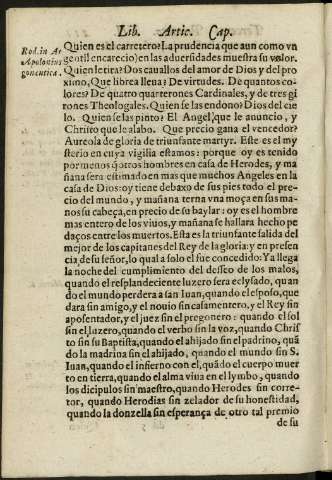 Lib. Artic. Cap.
Rod. in Ar
Apolonius
goncutica.
Quien es el carretero? La prudencia que aun como vn
gentil encarecio) en las aduersidades muestra su valor.
Quien le tira? Dos cauallos del amor de Dios y del pro
ximo, Que librea llena? De virtudes. De quantos co
lores? De quatro quarterones Cardinales, y de tres gi
rones Theologales. Quien se las endono? Dios del cie
lo. Quien se las pinto? El Angel, que le anuncio, y
Christo que le alabo. Que precio gana el vencedor?
Aureola de gloria de triunfante martyr. Este es el my
sterio en cuya vigilia estamos: porque oy es tenido
por menos q̃ otros hombres en casa de Herodes, y ma
ñana sera estimado en mas que muchos Angeles en la
casa de Dios: oy tiene debaxo de sus pies todo el pre-
cio del mundo, y mañana terna vna moça en sus ma-
nos su cabeça, en precio de su baylar: oy es el hombre
mas entero de los viuos, y mañana se hallara hecho pe
daços entre los muertos. Esta es la triunfante salida del
mejor de los capitanes del Rey de la gloria: y en presen
cia de su señor, lo qual a solo el fue concedido: Ya llega
la noche del cumplimiento del desseo de los malos,
quando el resplandeciente luzero sera eclysado, quan
do el mundo perdera a san Iuan, quando el esposo, que
dara sin amigo, y el nouio sin casamentero, y el Rey sin
aposentador, y el juez sin el pregonero: quando el sol
sin el luzero, quando el verbo sin la voz, quando Chris
to sin su Baptista, quando el ahijado sin el padrino, quã
do la madrina sin el ahijado, quando el mundo sin S.
Iuan, quando el infierno con el, quãdo el cuerpo muer
to en tierra, quando el alma viua en el lymbo, quando
los dicipulos sin maestro, quando Herodes sin corre-
tor, quando Herodias sin zelador de su honestidad,
quando la donzella sin esperança de otro tal premio
de su